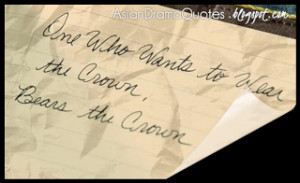 AsianDramaQuotes.blogspot.com
One Who Wants to Wear
the Crown,
Bears the Crown